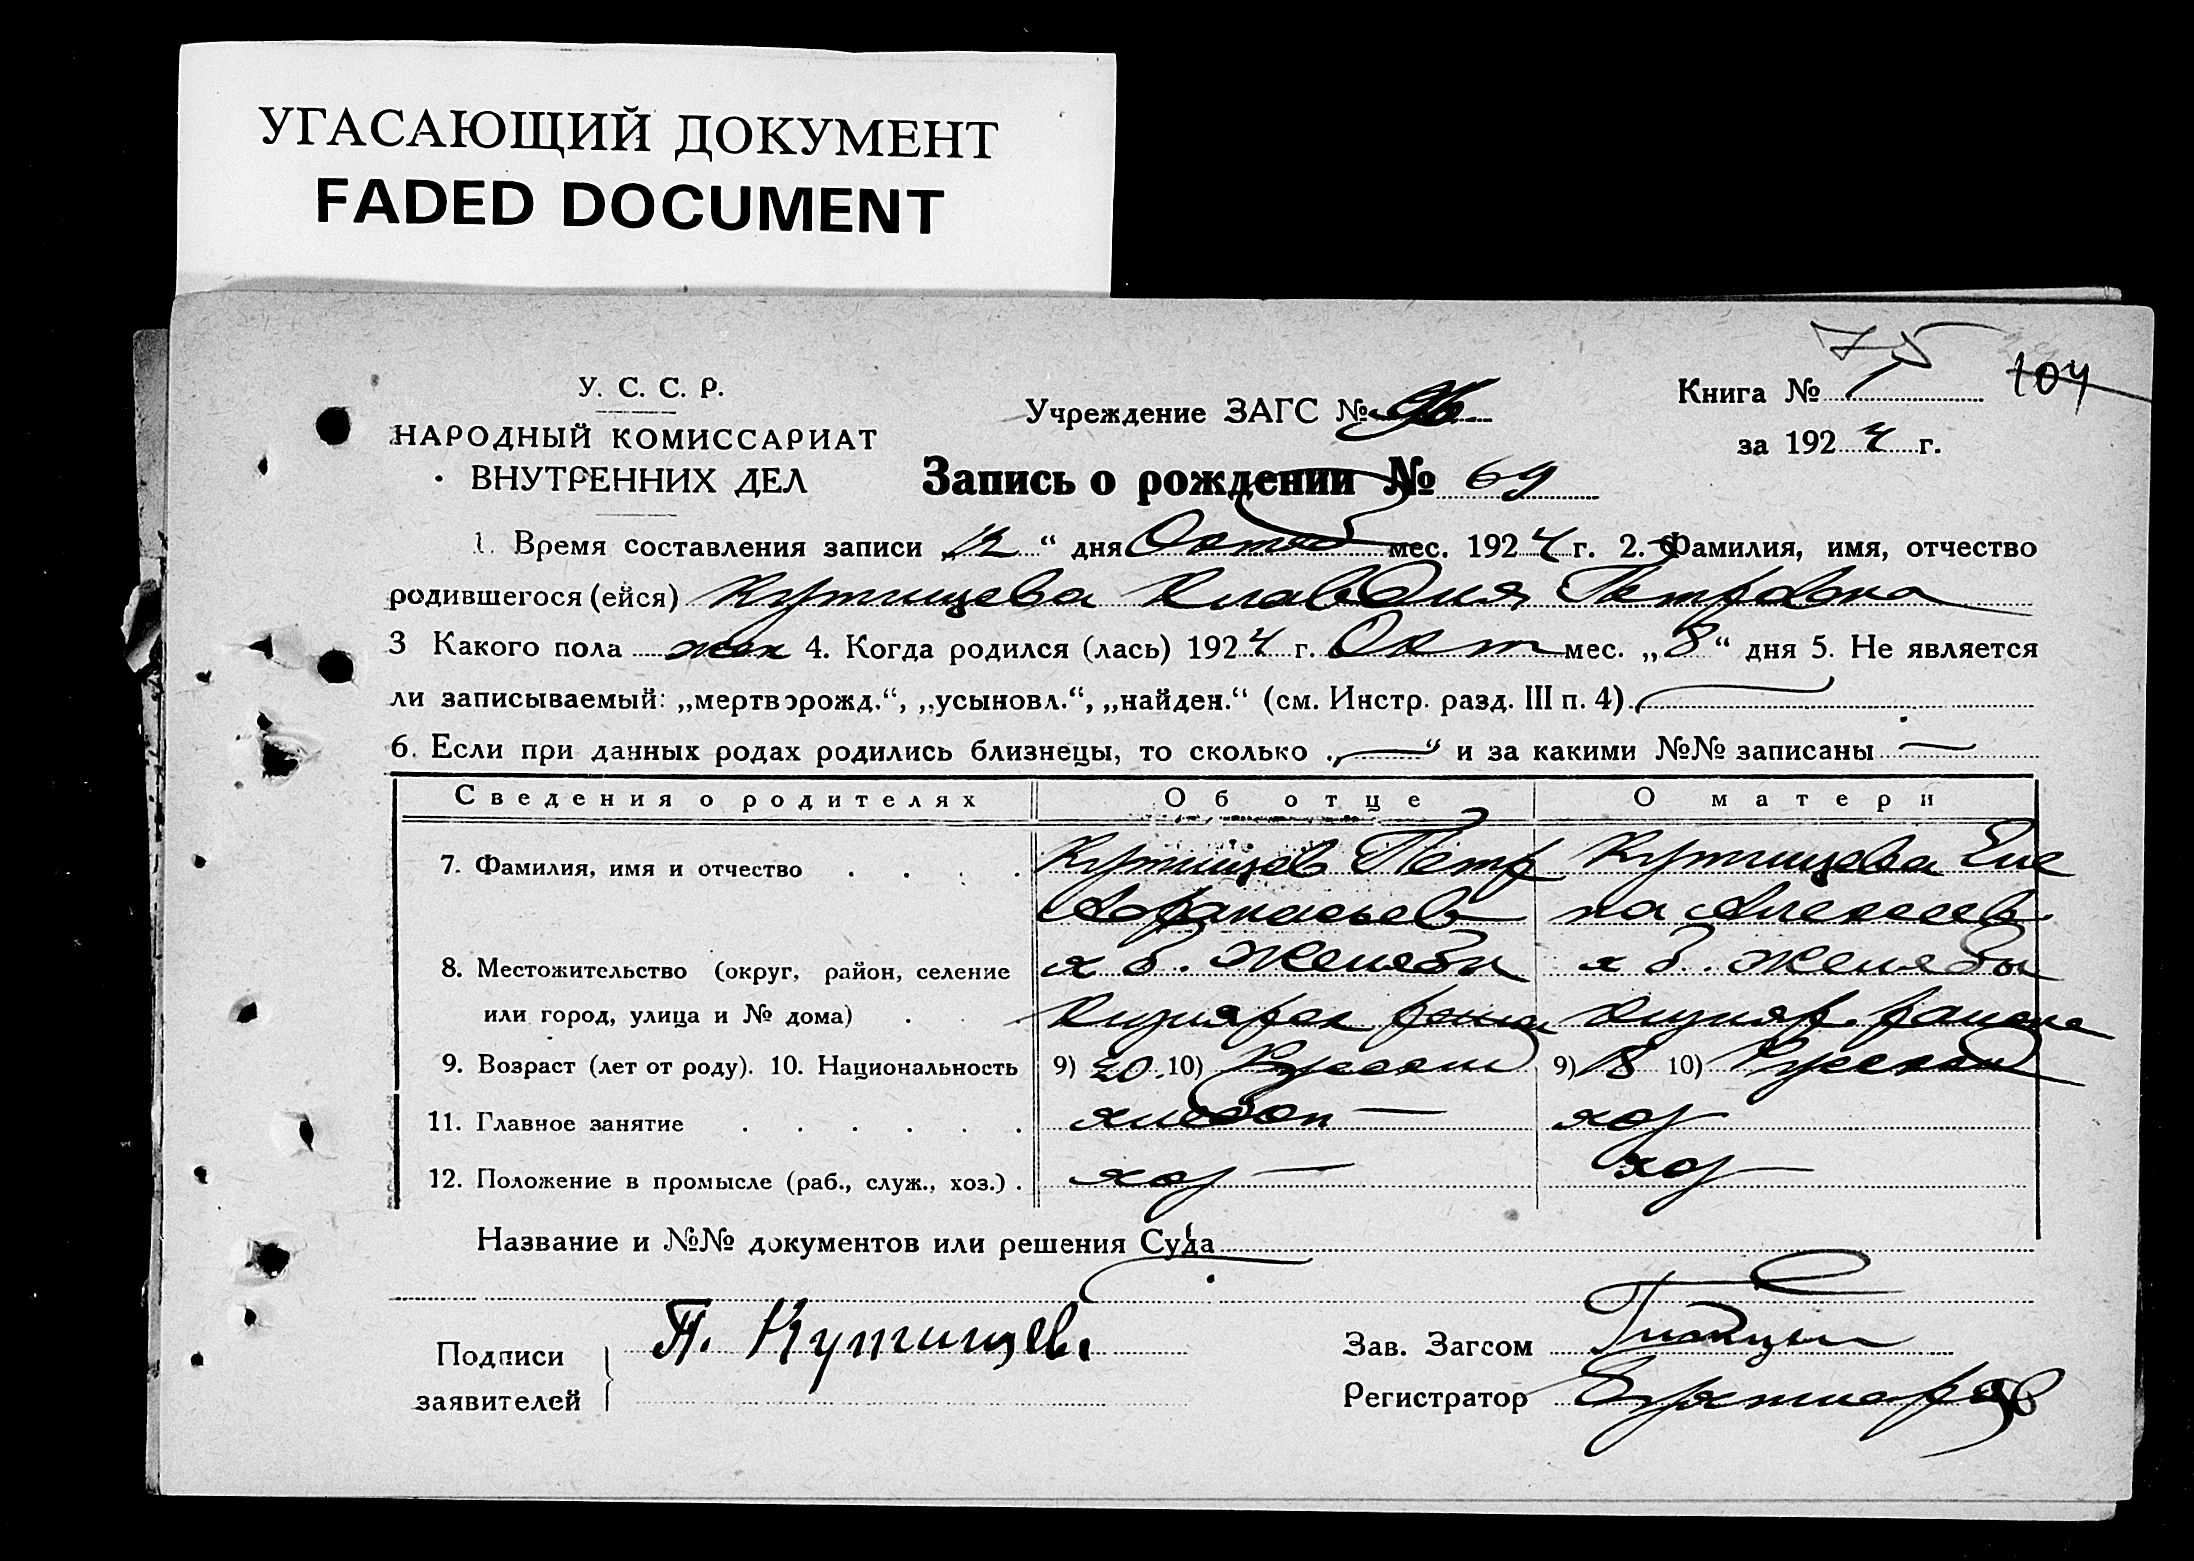 УГАСАЮЩИЙ ДОКУМЕНТ
FADED DOCUMENT
75
104
У. С. С. Р.
НАРОДНЫЙ КОМИССАРИАТ
ВНУТРЕННИХ ДЕЛ
Учреждение ЗАГС №
Книга № 1
за 1924 г.
Запись о рождении № 69
1. Время составления записи „12“ дня Октяб мес. 1924 г. 2. Фамилия, имя, отчество
родившегося (ейся) Кутищева Клавдия Петровна
3 Какого пола жен 4. Когда родился (лась) 1924 г. Окт мес. „8“ дня 5. Не является
ли записываемый: „мертворожд.“, „усыновл.“, „найден.“ (см. Инстр. разд. III п. 4) —
6. Если при данных родах родились близнецы, то сколько „—“ и за какими №№ записаны —
Сведения о родителях Об отце О матери
7. Фамилия, имя и отчество Кутищев Петр Кутищева Еле
Афанасьев на Алексеев
8. Местожительство (округ, район, селение х б. Желябы х б. Желябы
или город, улица и № дома) района
9. Возраст (лет от роду). 10. Национальность 9) 20 10) Русский 9) 18 10) Русская
11. Главное занятие хлебоп — хоз
12. Положение в промысле (раб., служ., хоз.) хоз — хоз —
Название и №№ документов или решения Суда
Подписи
заявителей
П. Кутищев
Зав. Загсом
Регистратор